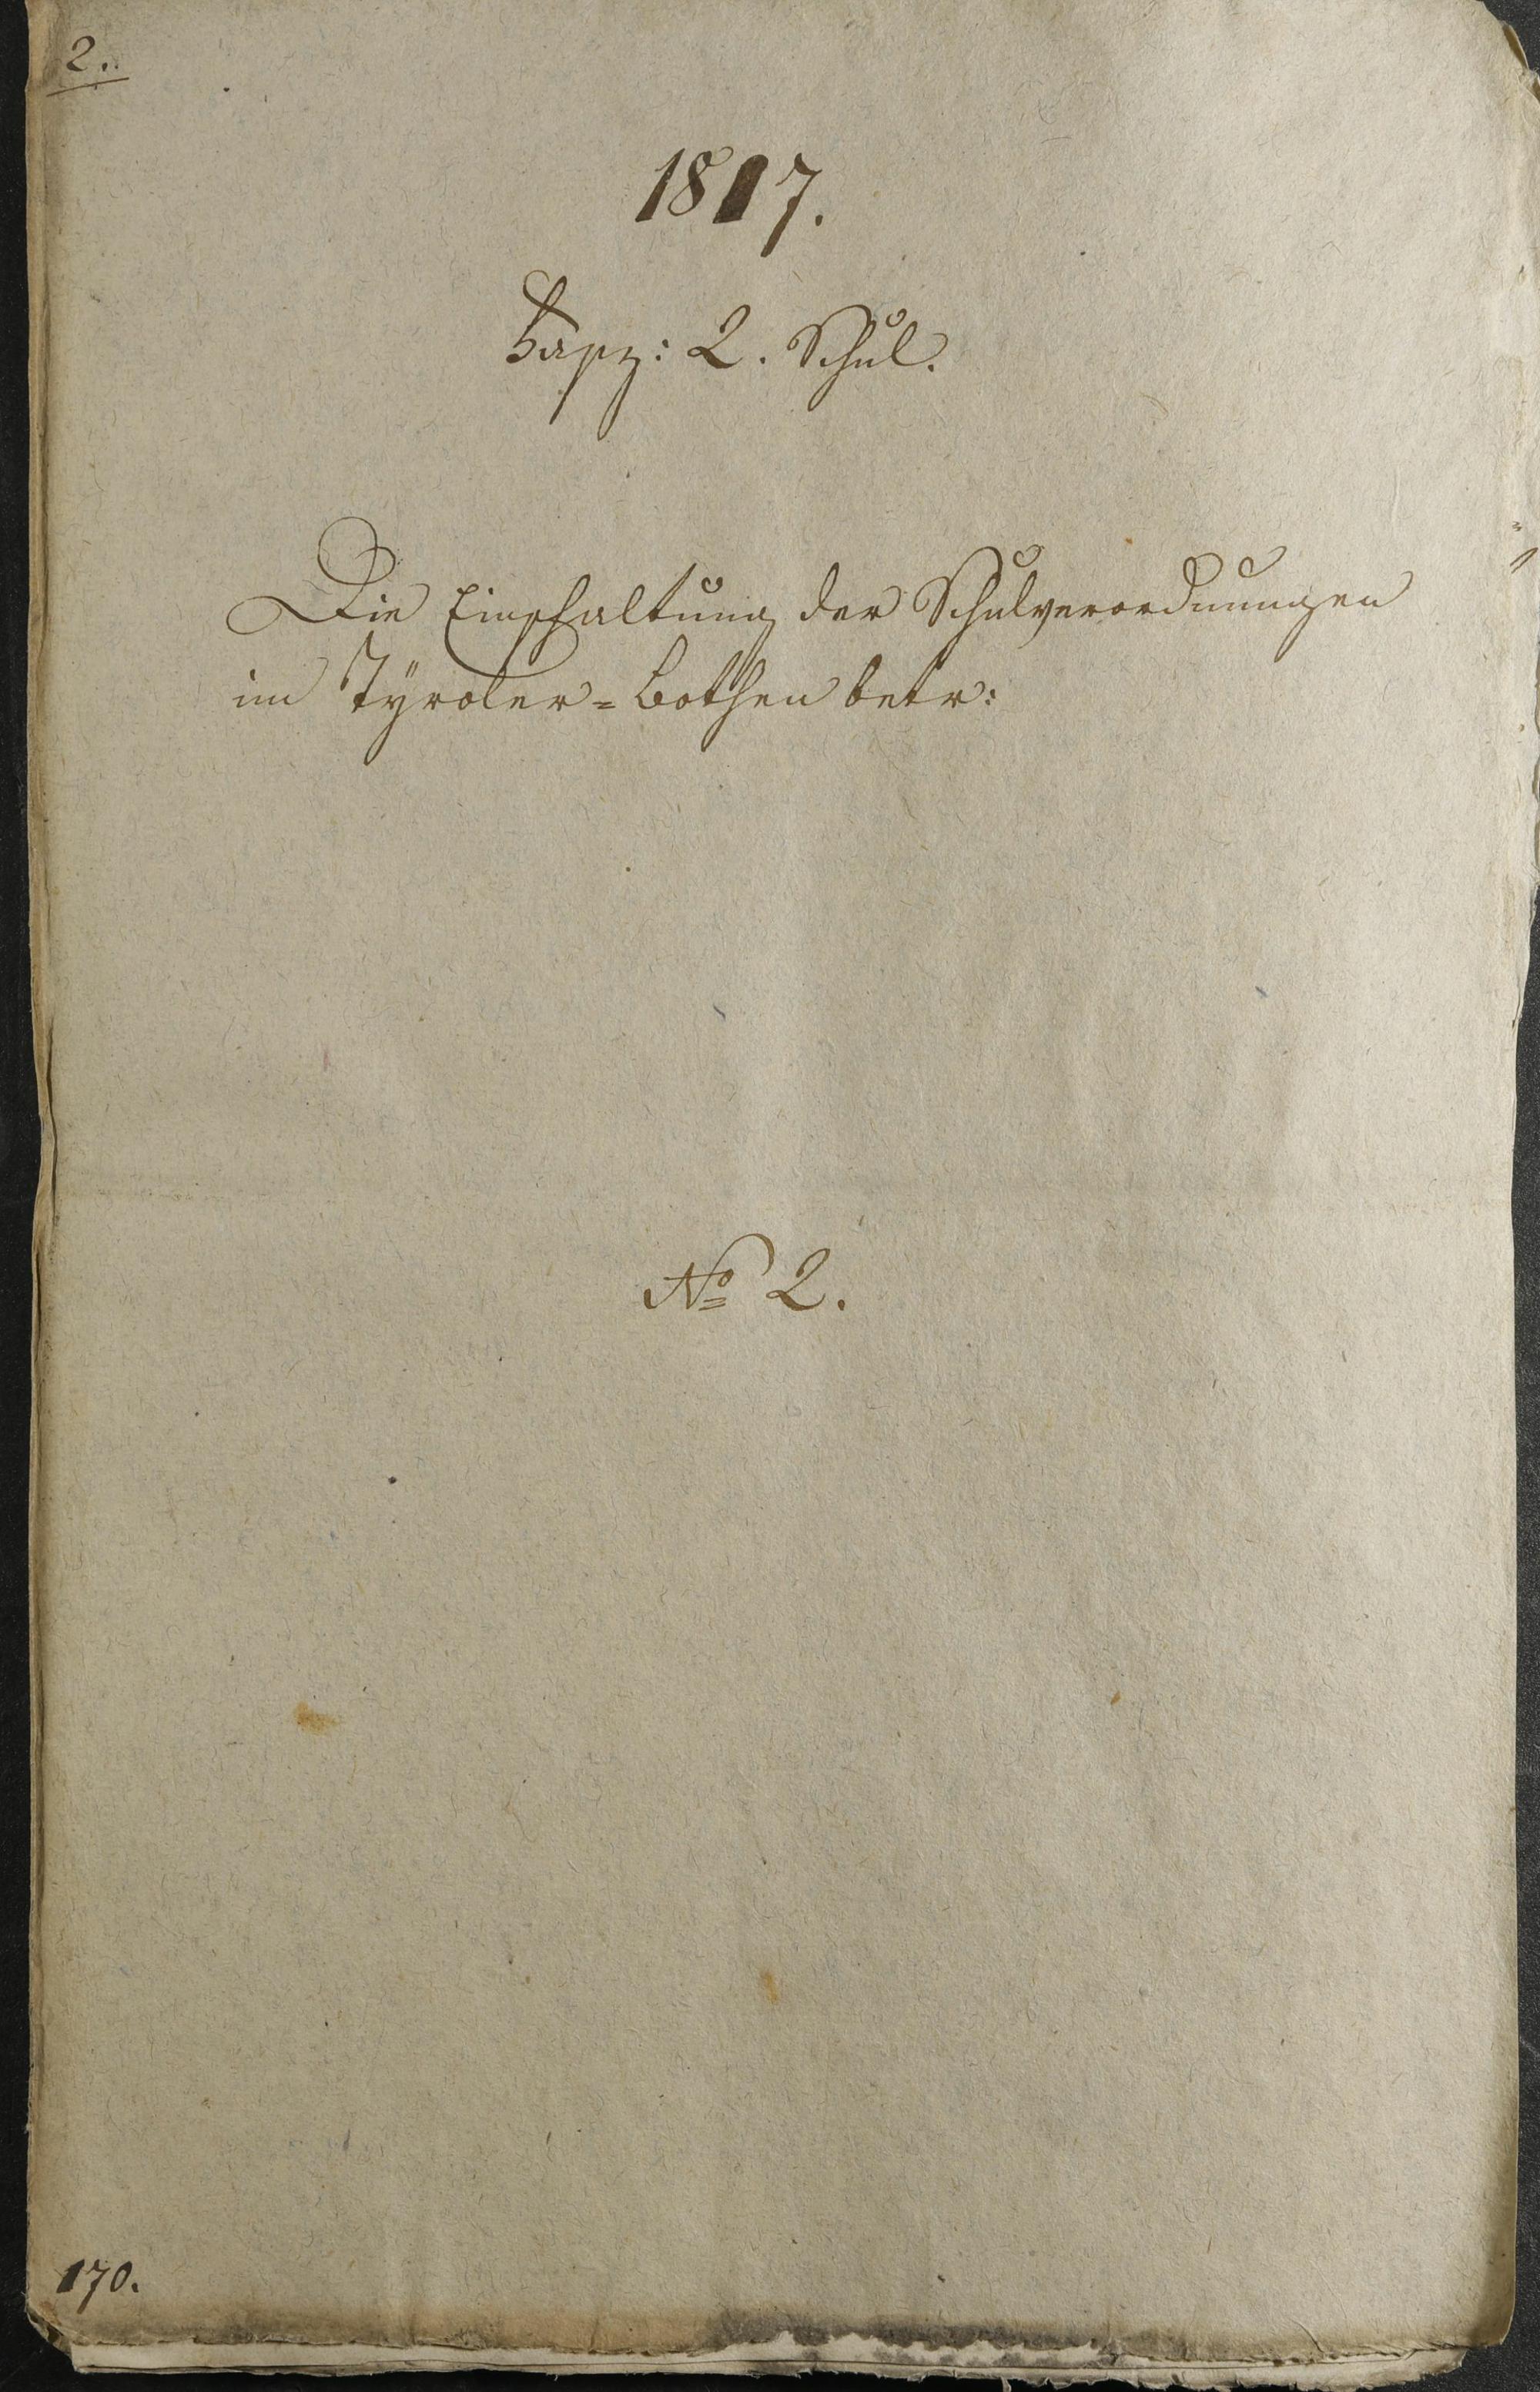 2.
1817.
Fasz: 2. Schul.
Die Einschaltung der Schulverordnungen
im Tyroler=Bothen betr:
No 2.
170.